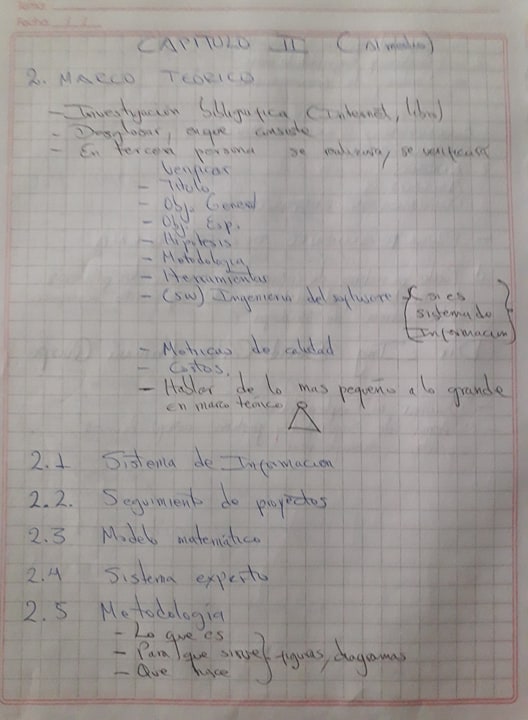 Tema:
Fecha:
CAPITULO II (
2. MARCO TEORICO
- Investigacion Bibligrafica (Internet, libro)
- Desglosar, en que consiste
- En tercera persona se realizara, se verificara
Verificar
- Titulo
- Obj. General
- Obj. Esp.
- Hipotesis
- Metodologia
- Herramientas
- (SW) Ingenieria del software { si es
sistema de
Informacion }
- Metricas de calidad
- Costos.
- Hablar de lo mas pequeño a lo grande
en marco teorico
2.1 Sistema de Informacion
2.2. Seguimiento de proyectos
2.3 Modelo matemático
2.4 Sistema experto
2.5 Metodología
- Lo que es
- Para que sirve } figuras, diagramas
- Que hace